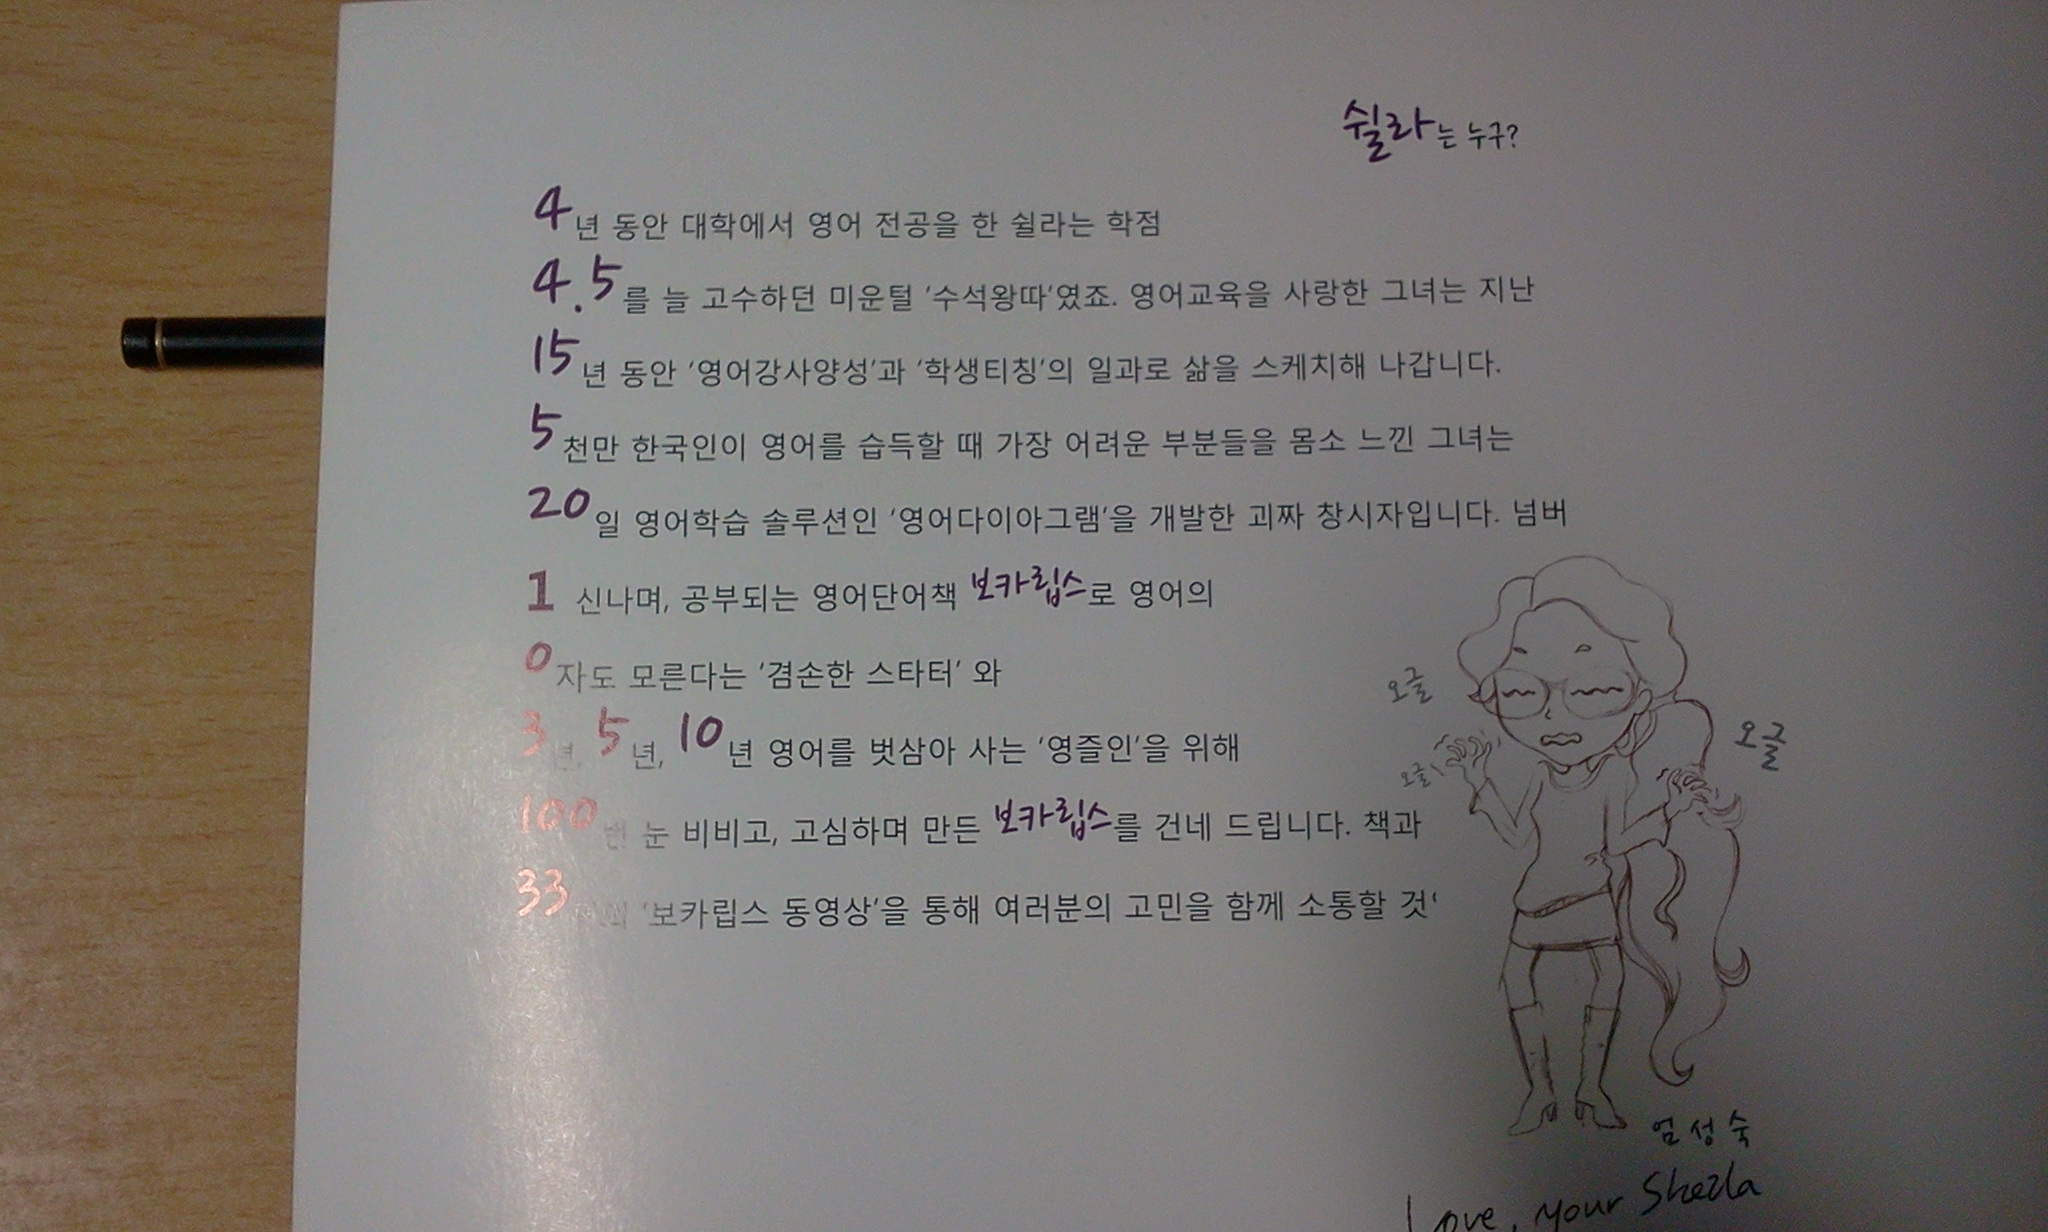 쉴라는 누구?
4년 동안 대학에서 영어 전공을 한 쉴라는 학점
4.5를 늘 고수하던 미운털 '수석왕따'였죠. 영어교육을 사랑한 그녀는 지난
15년 동안 '영어강사양성'과 '학생티칭'의 일과로 삶을 스케치해 나갑니다.
5천만 한국인이 영어를 습득할 때 가장 어려운 부분들을 몸소 느낀 그녀는
20일 영어학습 솔루션인 '영어다이아그램'을 개발한 괴짜 창시자입니다. 넘버
1 신나며, 공부되는 영어단어책 보카립스로 영어의
0자도 모른다는 '겸손한 스타터' 와
3년, 5년, 10년 영어를 벗삼아 사는 '영즐인'을 위해
100번 눈 비비고, 고심하며 만든 보카립스를 건네 드립니다. 책과
33 '보카립스 동영상'을 통해 여러분의 고민을 함께 소통할 것
오글
오글
오글
엄성숙
Love, your Sheila